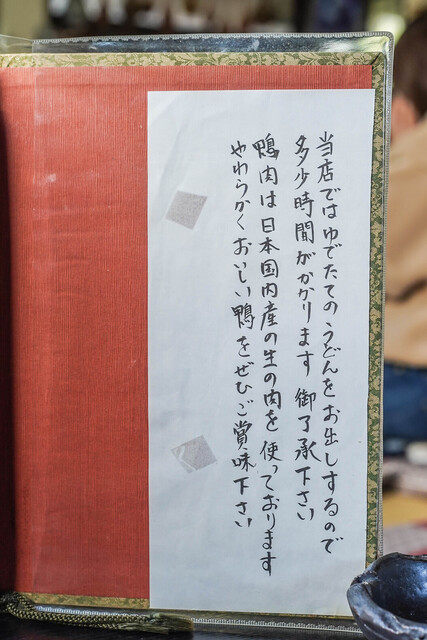 当店ではゆでたてのうどんをお出しするので
多少時間がかかります 御了承下さい
鴨肉は日本国内産の生の肉を使っております
やわらかくおいしい鴨をぜひご賞味下さい